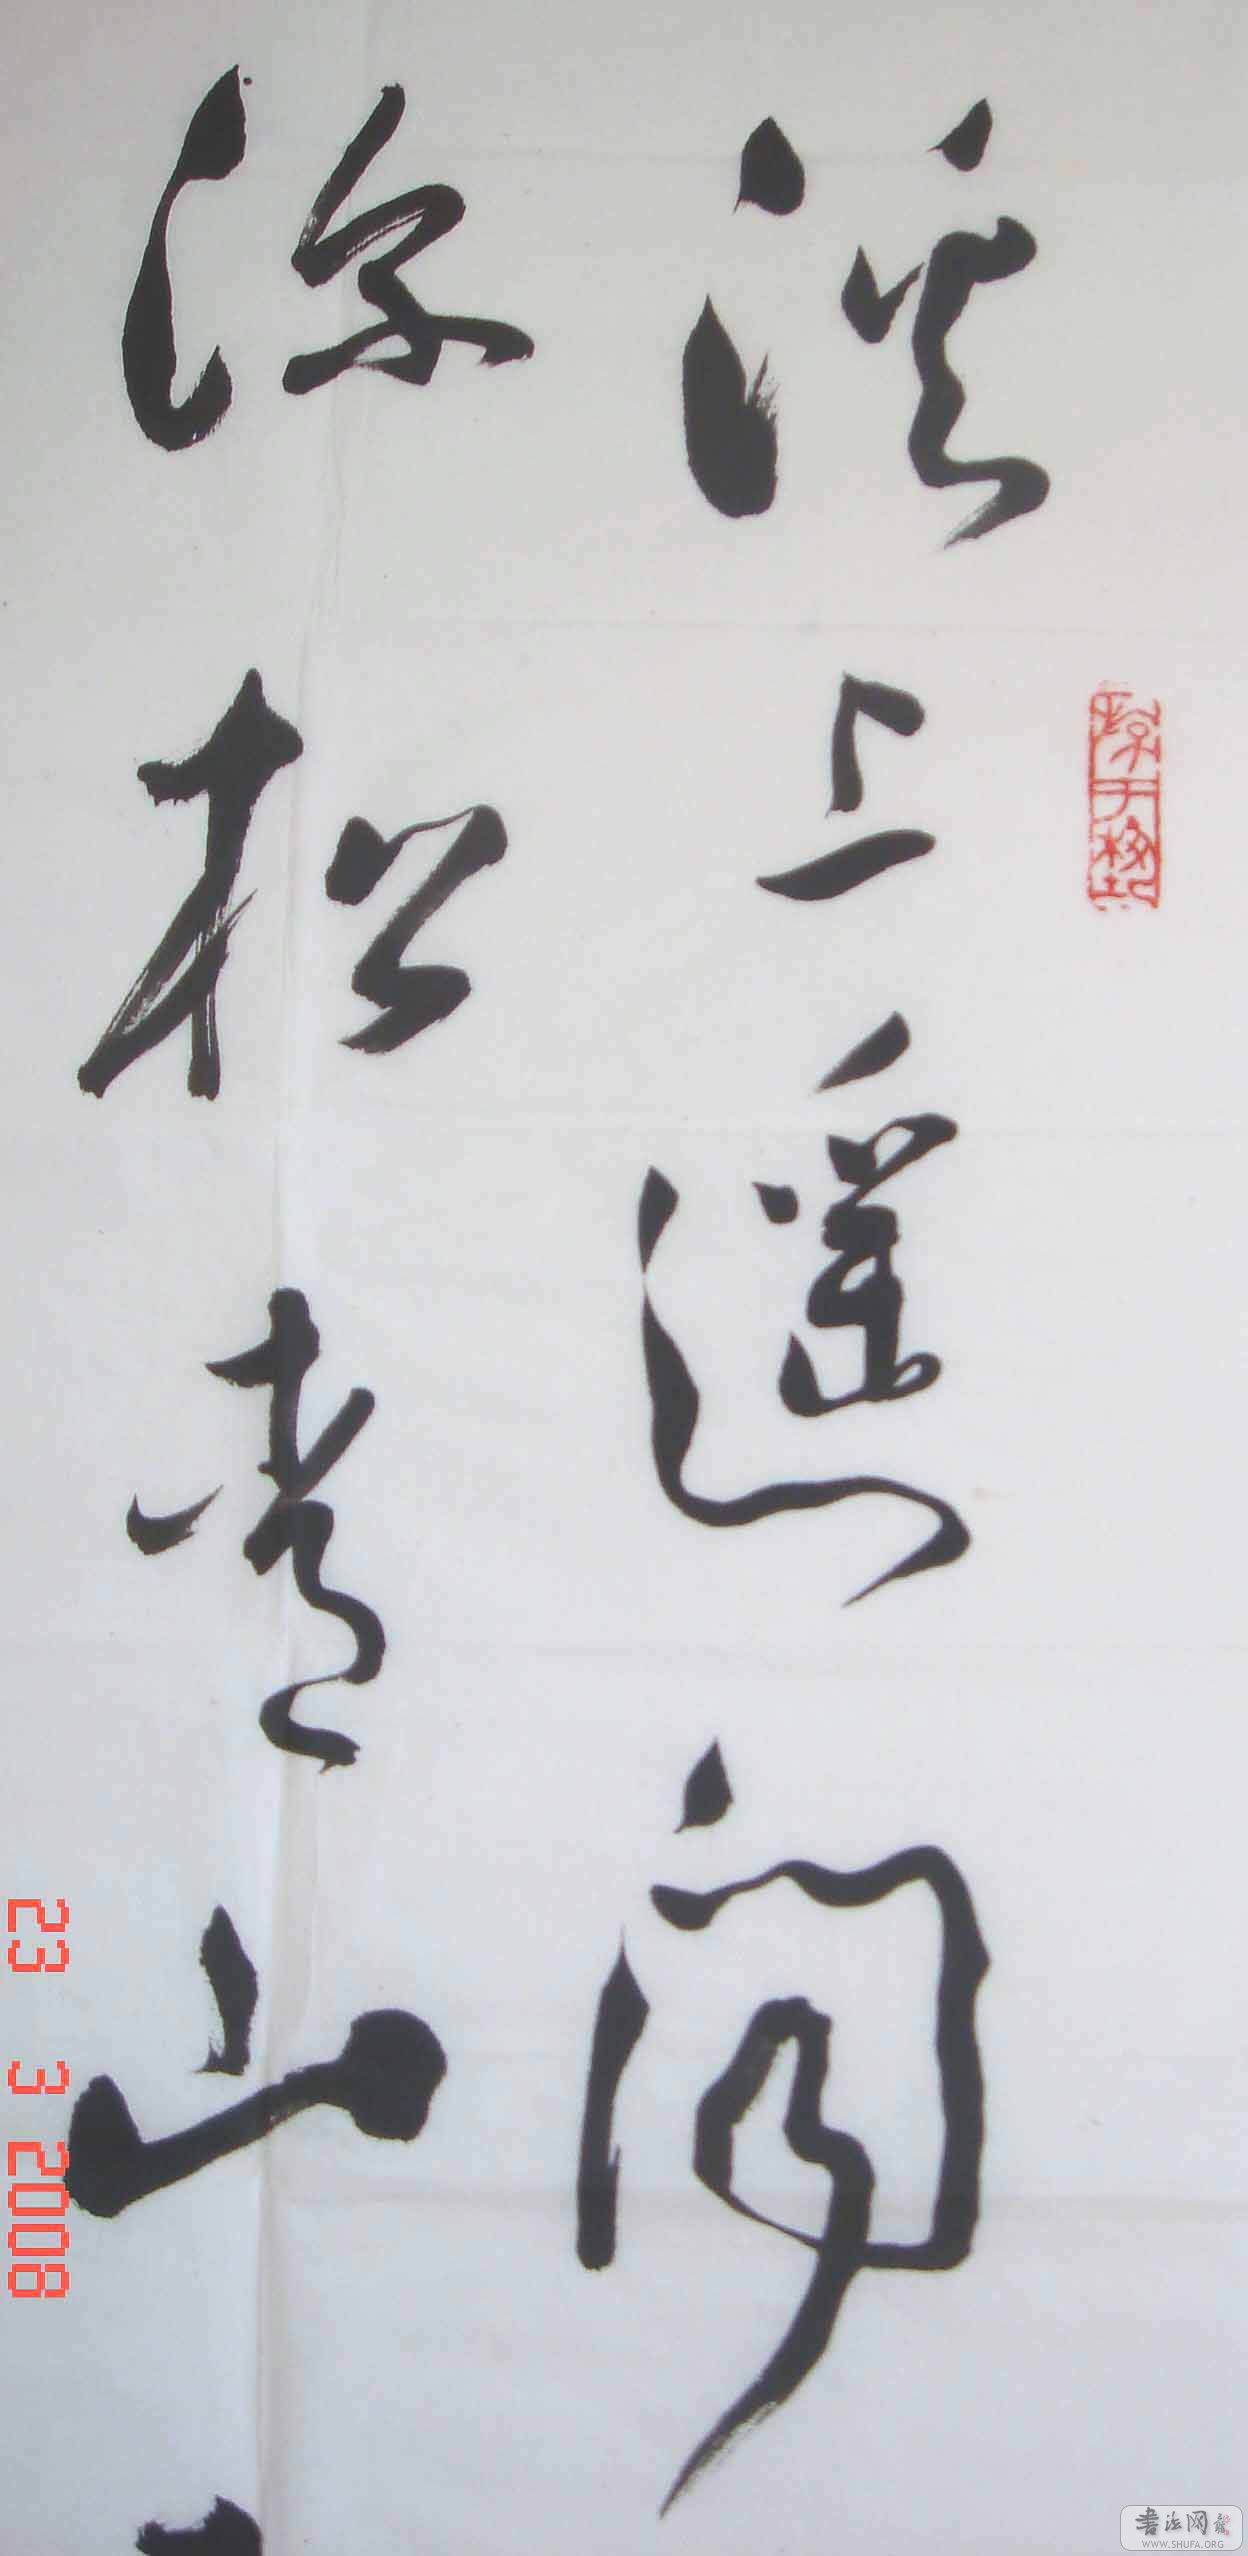 溪上遥闻
深松青山
23 3 2008
書法网
WWW.SHUFA.ORG